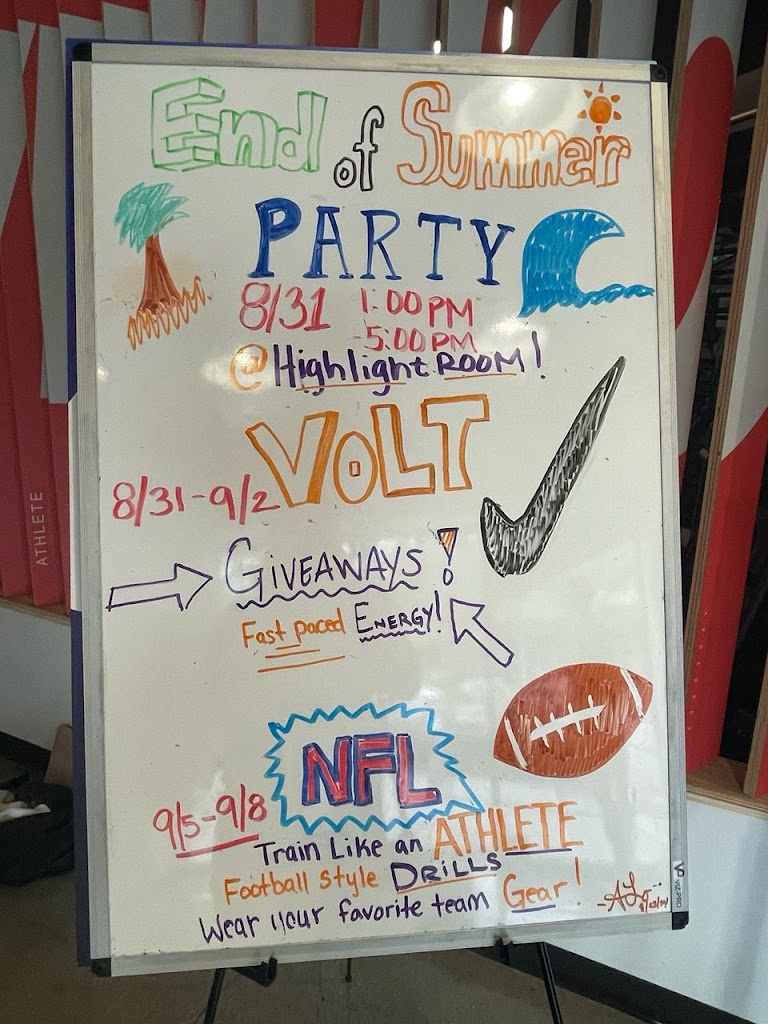 End of Summer
PARTY
8/31 1:00 PM
-5:00 PM
@Highlight ROOM!
VOLT
8/31-9/2
GIVEAWAYS!
Fast paced ENERGY!
NFL
9/5-9/8
Train Like an ATHLETE
Football Style DRILLS
Wear your favorite team Gear!
ATHLETE
VIZ-PRO